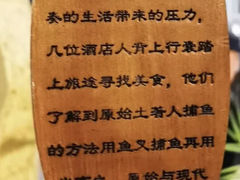 奏的生活带来的压力，
几位酒店人背上行囊踏
上旅途寻找美食，他们
了解到原始土著人捕鱼
的方法用鱼叉捕鱼再用
原始与现代